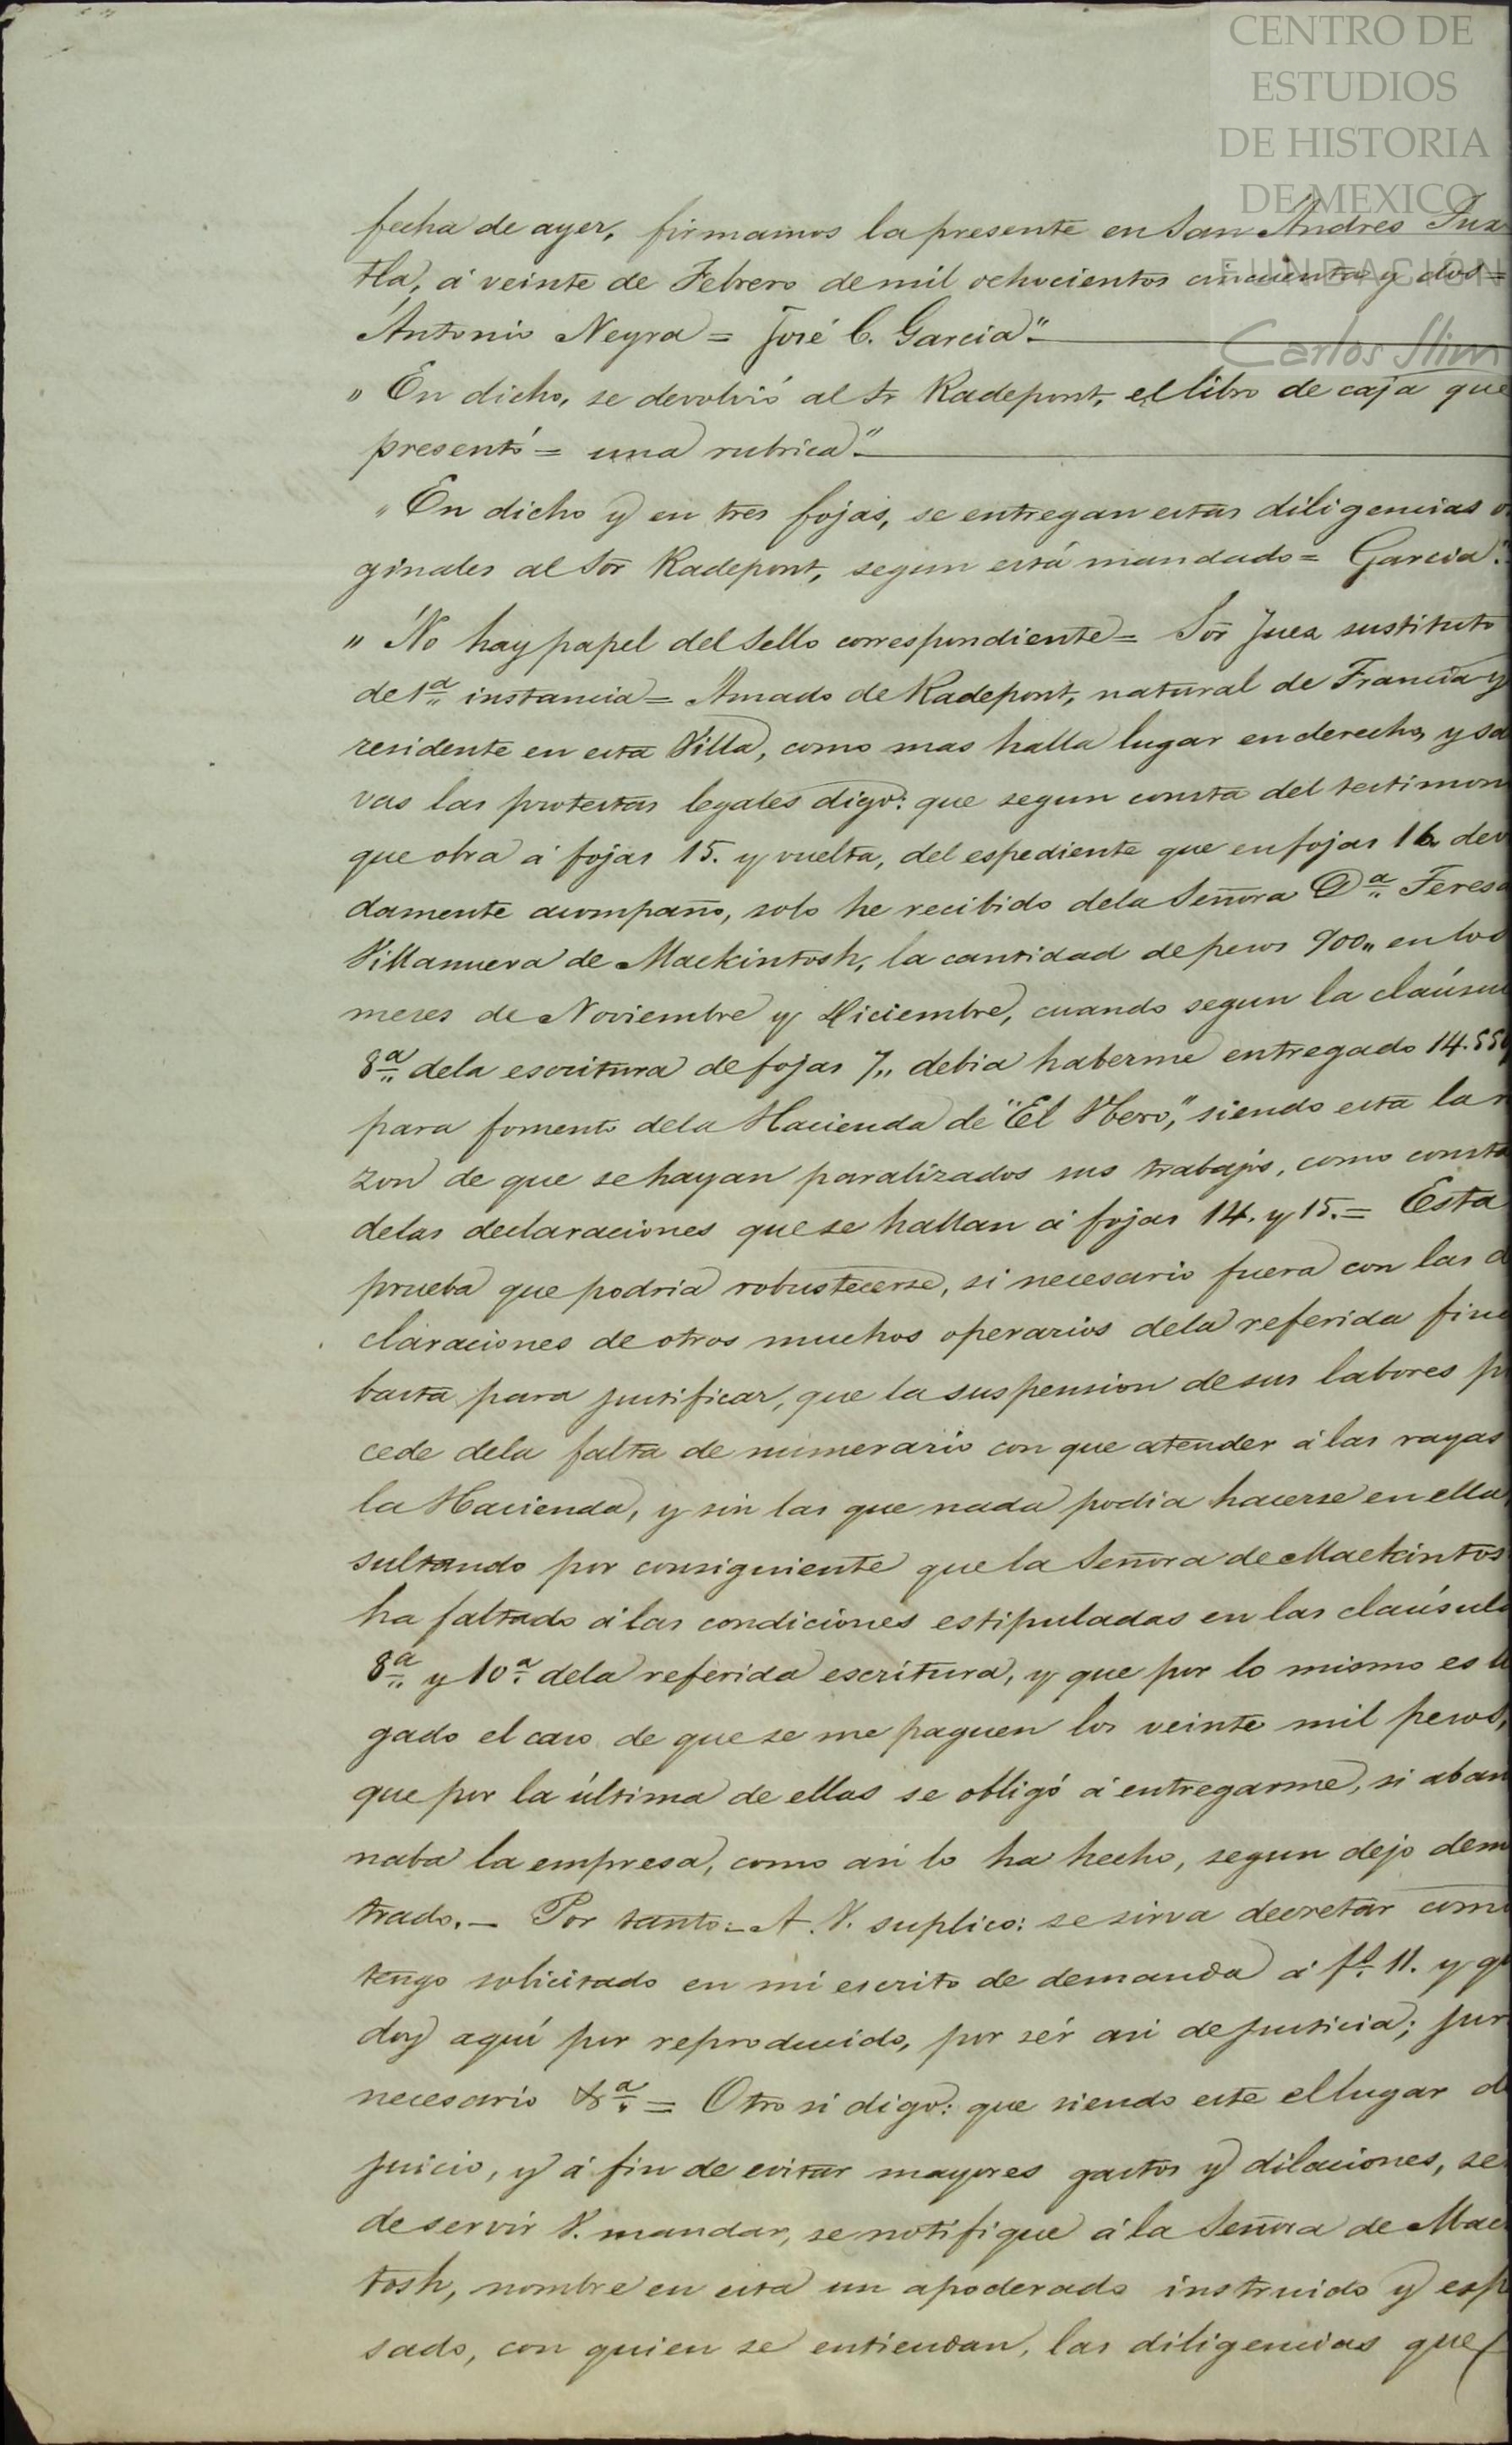 CENTRO DE
ESTUDIOS
DE HISTORIA
DE MEXICO
FUNDACIÓN
Carlos Slim
fecha de ayer, firmamos la presente en San Andres Tux
tla, á veinte de Febrero de mil ochocientos cincuenta y dos =
Antonio Neyra = José C. Garcia".
" En dicho, se devolvió al Sr Radepont, el libro de caja que
presentó = una rubrica".
" En dicho y en tres fojas, se entregan estas diligencias o
ginales al Sor Radepont, segun está mandado = Garcia".
" No hay papel del Sello correspondiente = Sor Juez sustituto
de 1ª instancia = Amado de Radepont, natural de Francia y
residente en esta Villa, como mas halla lugar en derecho, y sa
vas las protestas legales digo: que segun consta del testimon
que obra á fojas 15. y vuelta, del espediente que en fojas 16 dev
damente acompaño, solo he recibido dela Señora Dª Teresa
Villanueva de Mackintosh, la cantidad de pesos 900,, en los
meses de Noviembre y Diciembre, cuando segun la claúsu
8ª dela escritura de fojas 7,, debia haberme entregado 14.550
para fomento dela Hacienda de "El Obero", siendo esta la r
zon de que se hayan paralizados sus trabajos, como consta
delas declaraciones que se hallan á fojas 14. y 15. = Esta
prueba que podria robustecerse, si necesario fuera con las d
claraciones de otros muchos operarios dela referida finc
basta para justificar, que la suspension de sus labores p
cede dela falta de numerario con que atender á las rayas
la Hacienda, y sin las que nada podia hacerse en ella,
sultando por consiguiente que la Señora de Mackintos
ha faltado á las condiciones estipuladas en las claúsula
8ª y 10ª dela referida escritura, y que por lo mismo es ll
gado el caso de que se me paguen los veinte mil pesos,
que por la última de ellas se obligó á entregarme, si aban
naba la empresa, como asi lo ha hecho, segun dejo dem
trado. — Por tanto = A. V. suplico: se sirva decretar com
tengo solicitado en mi escrito de demanda á fº 11. y qu
doy aquí por reproducido, por sér asi de justicia; jur
necesario &ª = Otro si digo: que siendo este el lugar d
juicio, y á fin de evitar mayores gastos y dilaciones, se
de servir V. mandar, se notifique á la Señora de Mac
tosh, nombre en esta un apoderado instruido y esp
sado, con quien se entiendan, las diligencias que